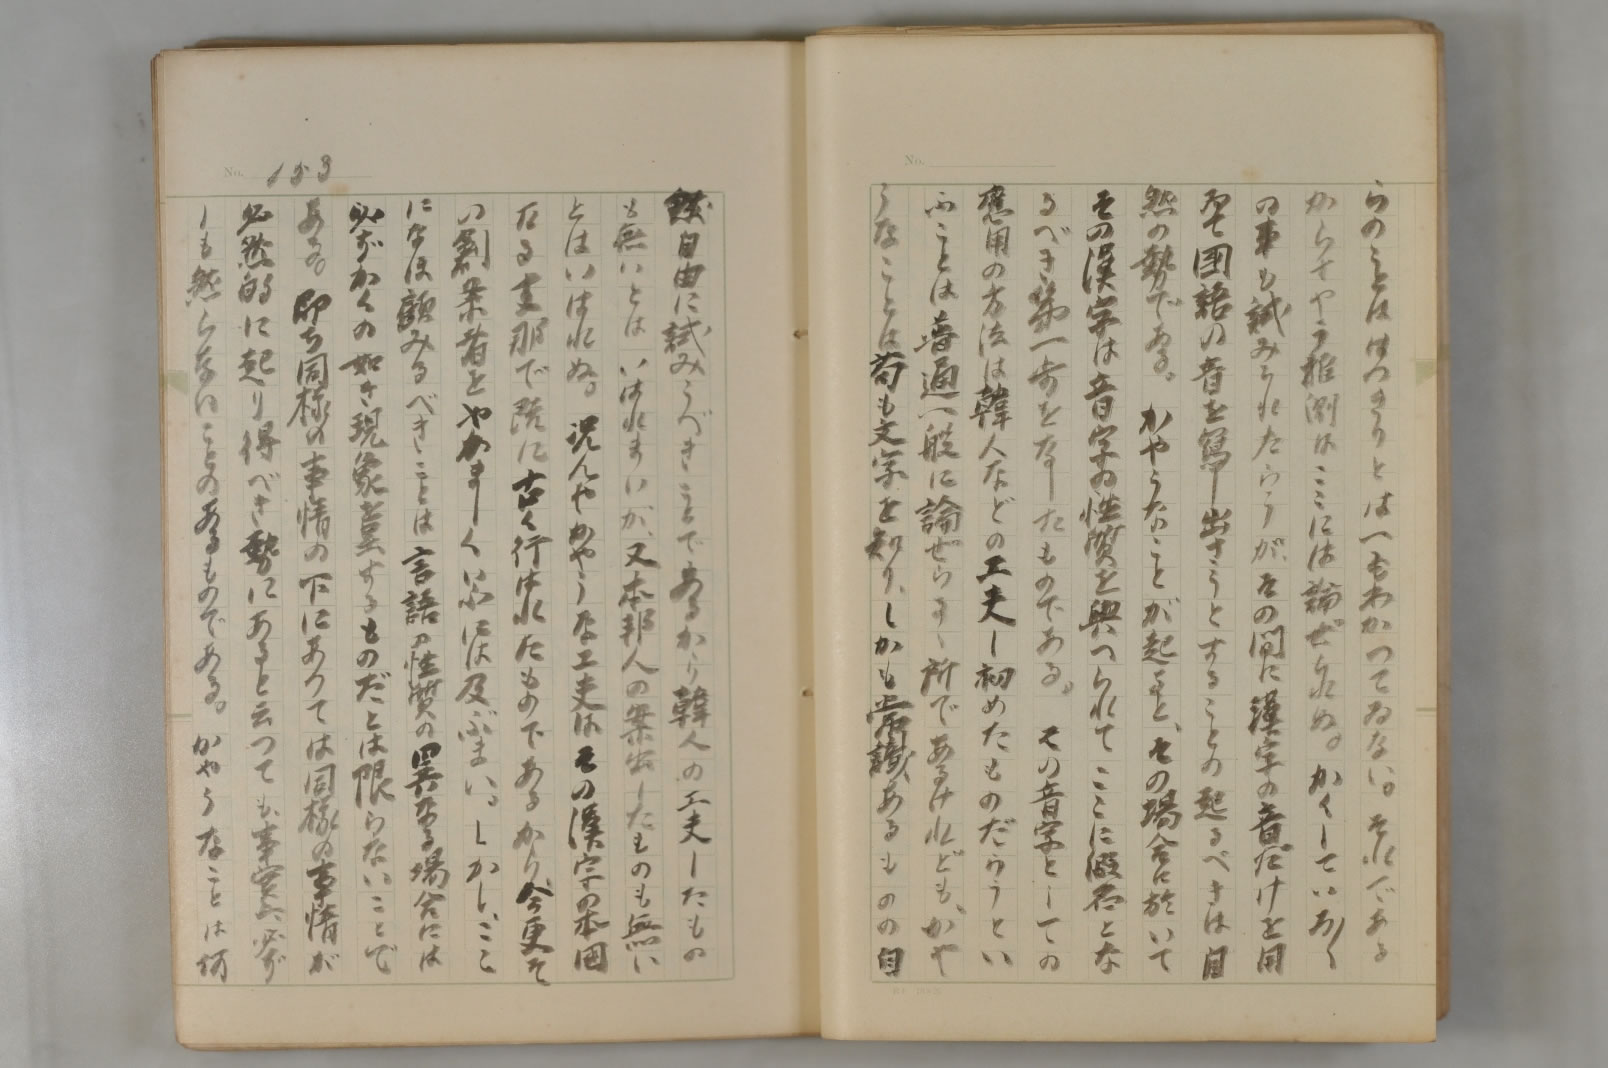 らのことははつきりとは一もわかつてゐない。それである
からてやう推測はここには論ぜられぬ。かくしていろ〱
の事も試みられたらうが、その間に漢字の音だけを用
ゐて国語の音を寫し出さうとすることの起るべきは自
然の勢である。かやうなことが起ると、その場合に於いて
その漢字は音字の性質を與へられてここに假名とな
るべき第一歩をなしたものである。その音字としての
應用の方法は韓人などの工夫し初めたものだらうとい
ふことは普通一般に論ぜらるゝ所であるけれども、かや
うなことは苟も文字を知り、しかも常識あるものの自
No. 183
然自由に試みうべきことであるから韓人の工夫したもの
も無いとはいはれまいが、又本邦人の案出したものも無い
とはいはれぬ。况んやかやうな工夫はその漢字の本国
なる支那で既に古く行はれたものであるから、今更そ
の創案者をやかましくいふには及ぶまい。しかし、ここ
になほ顧みるべきことは言語の性質の異なる場合には
必ずかくの如き現象を呈するものだとは限らないことで
ある。即ち同様の事情の下にありては同様の事情が
必然的に起り得べき勢にあると云つても、事実は必ず
しも然らないことのあるものである。かやうなことは何